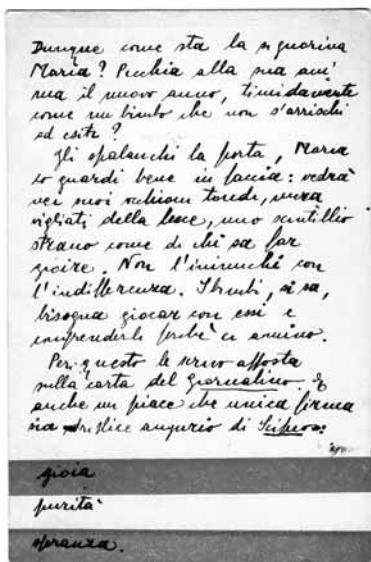 Dunque come sta la signorina
Maria? Picchia alla sua ani
ma il nuovo anno, timidamente
come un bimbo che non s'arrischi
ed esiti?
Gli spalanchi la porta, Maria
lo guardi bene in faccia: vedrà
nei suoi occhioni
della luce, uno scintillio
strano come di chi sa far
gioire. Non l'inimichi con
l'indifferenza. I bimbi, si sa,
bisogna giocar con essi e
comprenderli perchè ci amino.
Per questo le scrivo apposta
sulla carta del Giornalino. E
anche mi piace che unica firma
sia augurio di
gioia
purità
speranza.